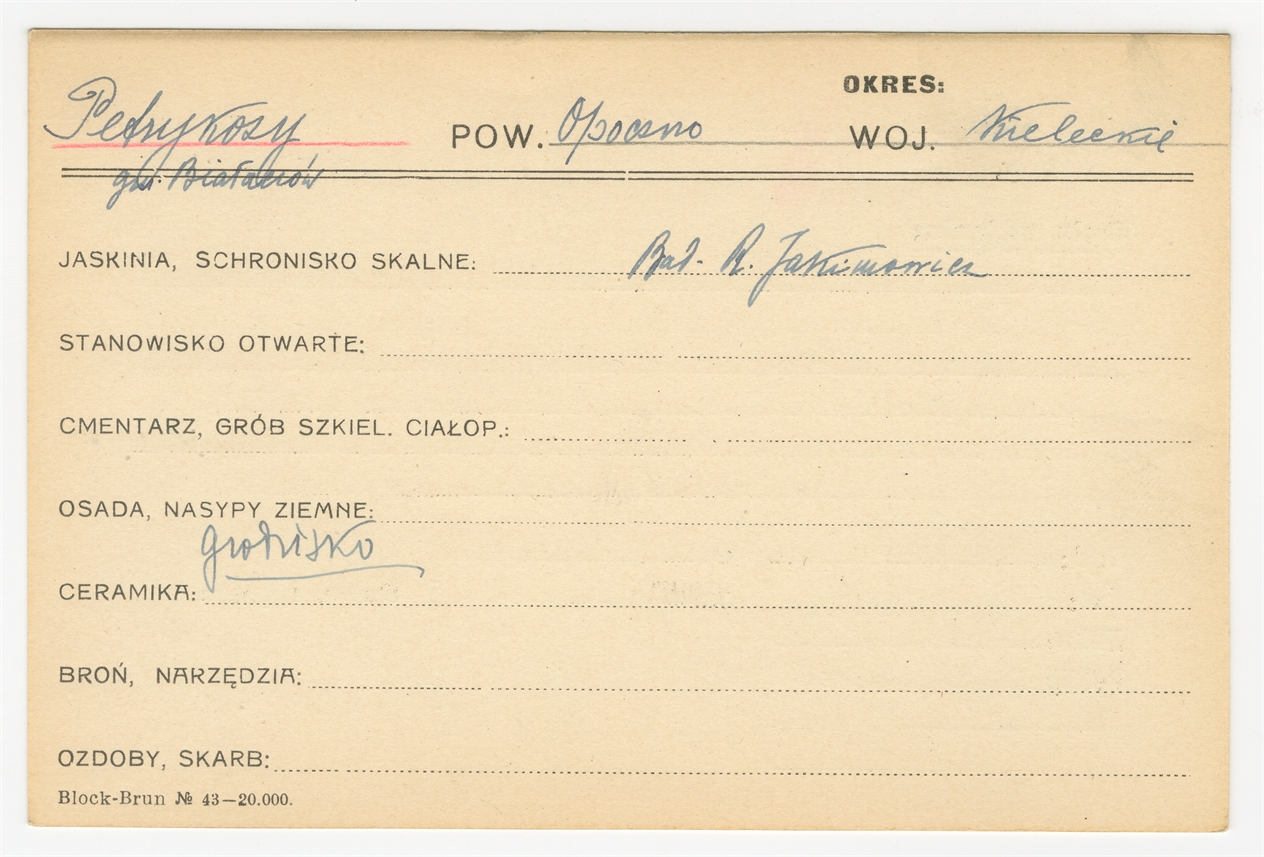 OKRES:
Petrykosy POW. Opoczno WOJ. Kieleckie
gm. Białaczów
JASKINIA, SCHRONISKO SKALNE: Bad. R. Jakimowicz
STANOWISKO OTWARTE:
CMENTARZ, GRÓB SZKIEL. CIAŁOP.:
OSADA, NASYPY ZIEMNE:
grodzisko
CERAMIKA:
BROŃ, NARZĘDZIA:
OZDOBY, SKARB:
Block-Brun № 43—20.000.